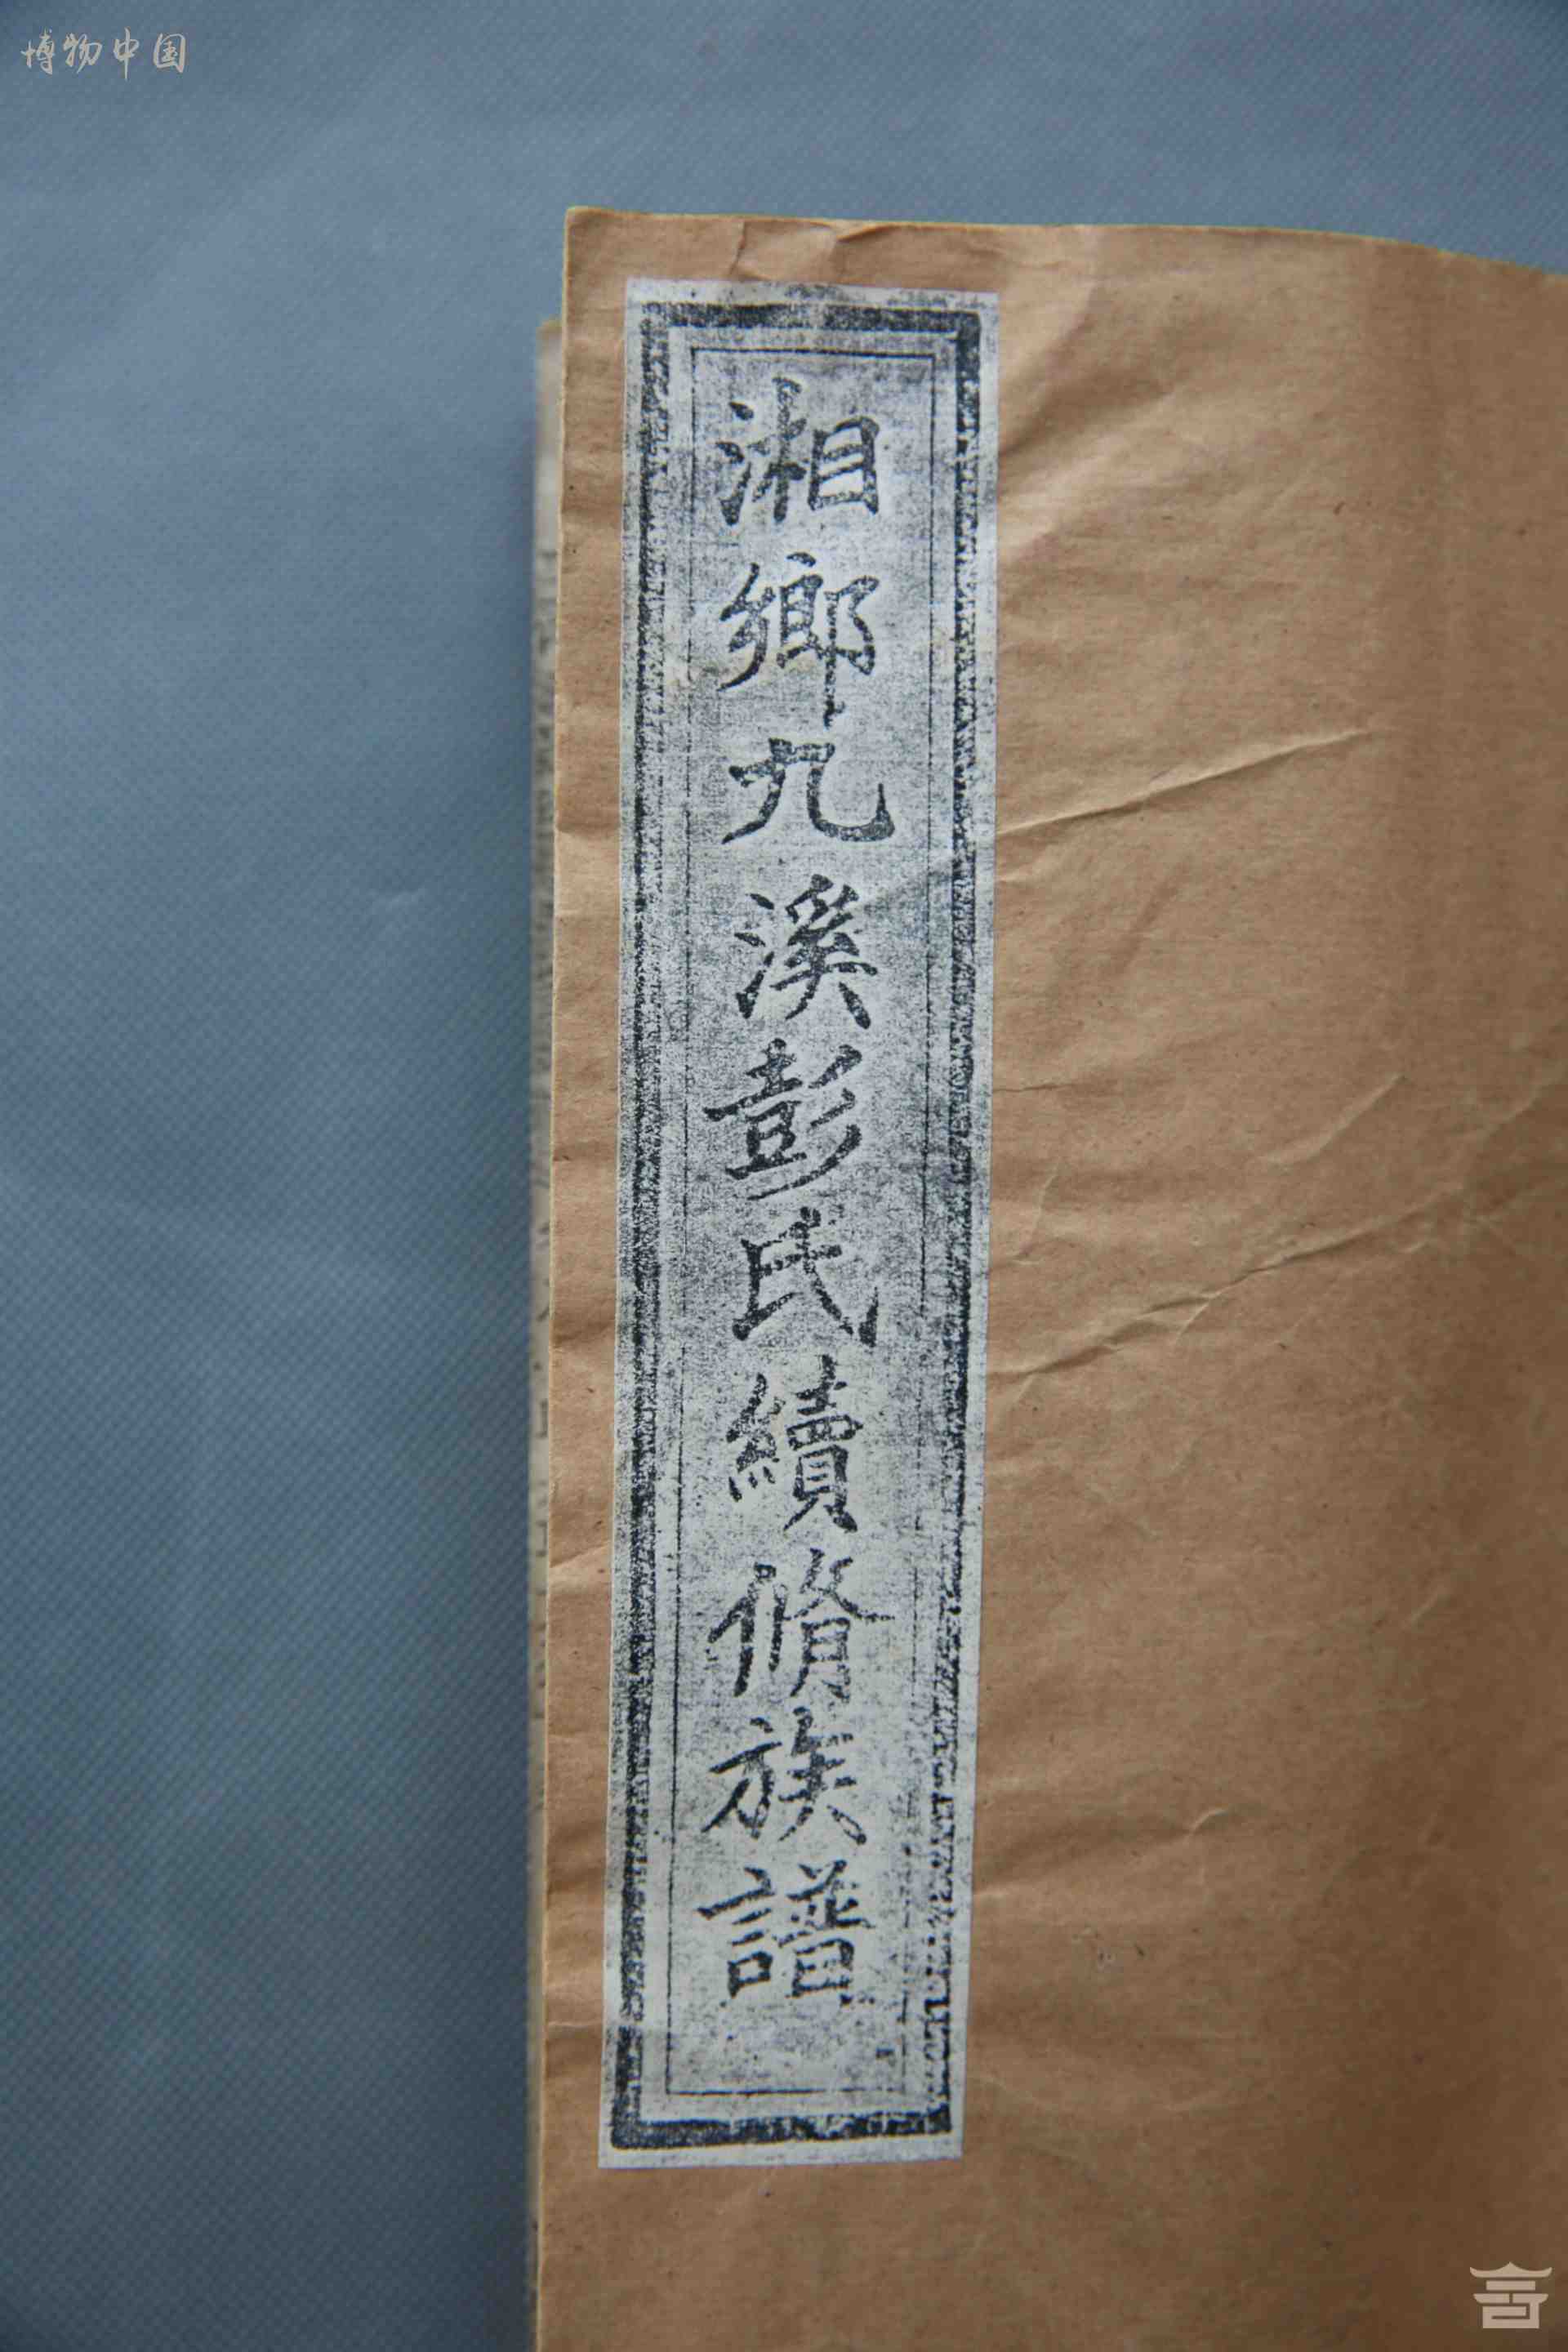 博物中国
湘鄉九溪彭氏續脩族譜